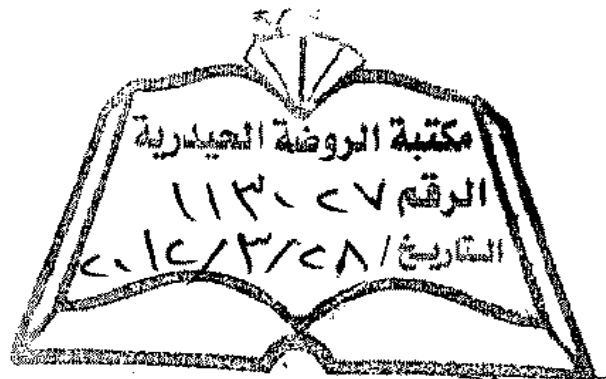 مكتبة الروضة الحيدرية
الرقم ١١٣٠٢٧
التاريخ / ٢٨/٣/٢٠١٢